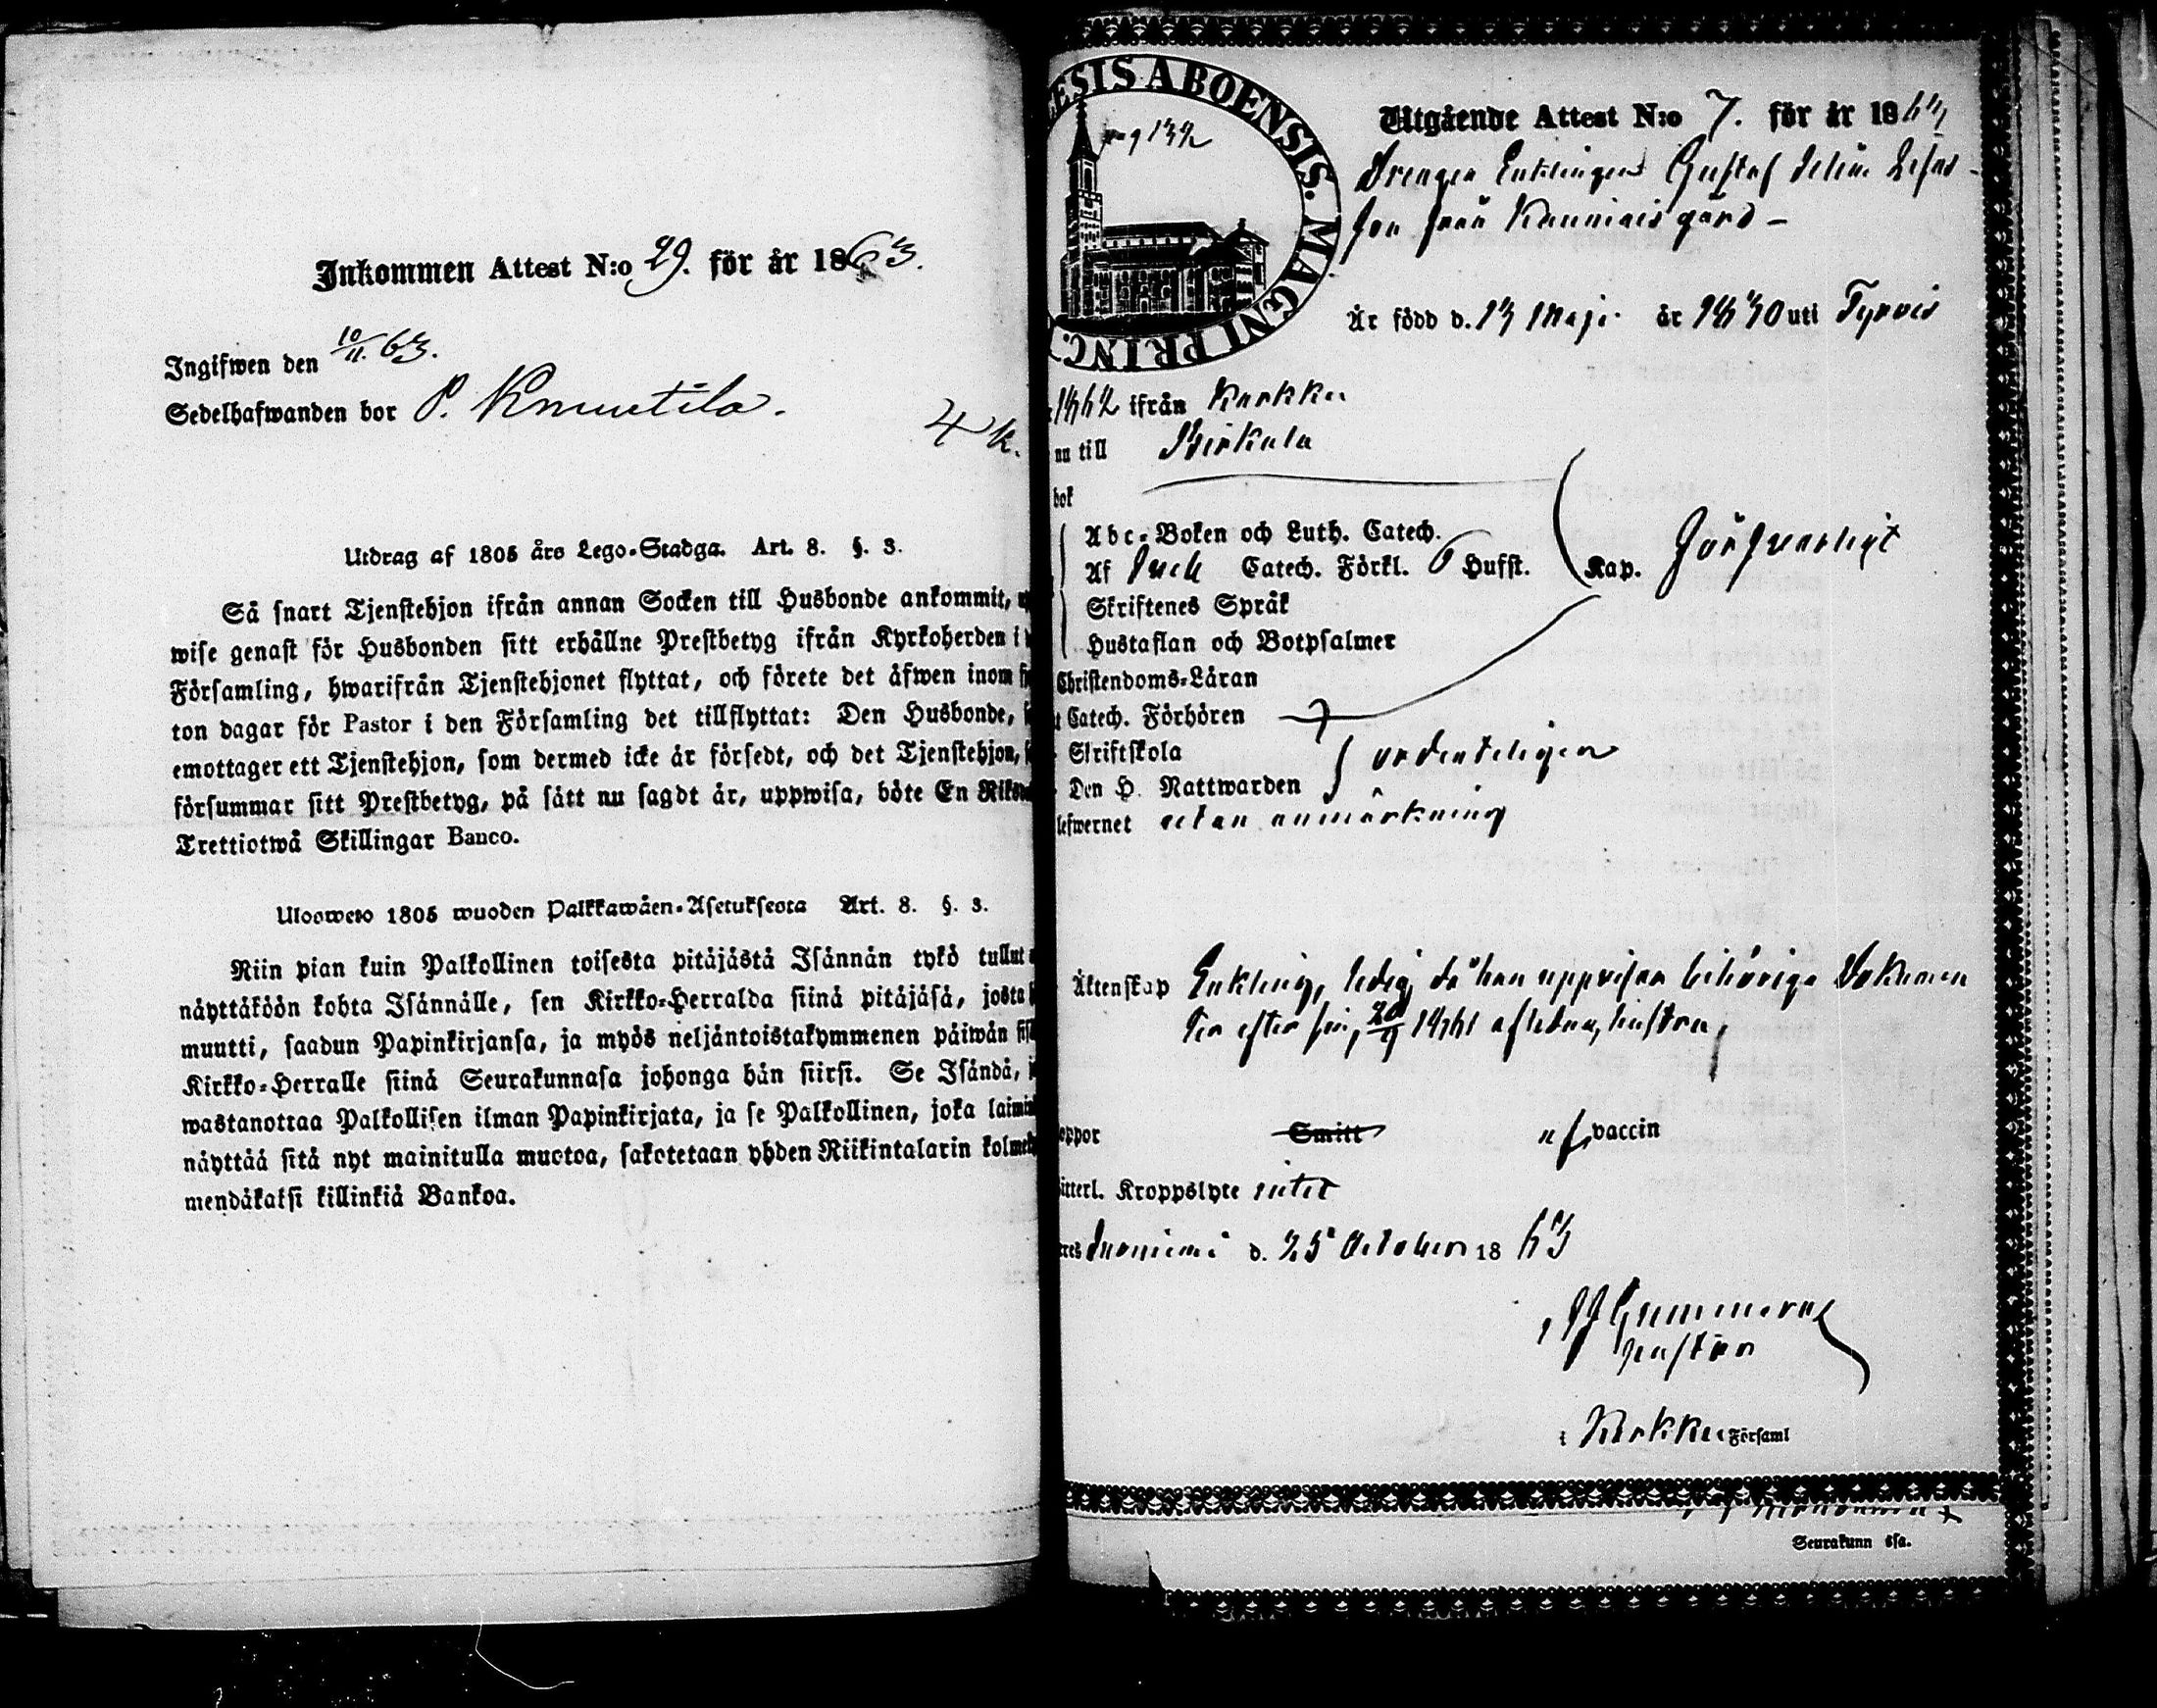 Inkommen Attest N:o 29. för år 1863.
Ingifwen den 10/11. 63.
Sedelhafwanden bor P. Knuutila.
4 k.
Utdrag af 1805 års Lego-Stadga. Art. 8. §. 3.
Så snart Tjenstehjon ifrån annan Socken till Husbonde ankommit,
wise genast för Husbonden sitt erhållne Prestbetyg ifrån Kyrkoherden i
Församling, hwarifrån Tjenstehjonet flyttat, och förete det äfwen inom
ton dagar för Pastor i den Församling det tillflyttat: Den Husbonde,
emottager ett Tjenstehjon, som dermed icke är försedt, och det Tjenstehjon,
försummar sitt Prestbetyg, på sätt nu sagdt är, uppwisa, böte En
Trettiotwå Skillingar Banco.
Ulosweto 1805 wuoden Palkkawäen-Asetuksesta Art. 8. §. 3.
Niin pian kuin Palkollinen toisesta pitäjästä Isännän tykö tullut
näyttäköön kohta Isännälle, sen Kirkko-Herralda siinä pitäjäsä, josta
muutti, saadun Papinkirjansa, ja myös neljäntoistakymmenen päiwän
Kirkko-Herralle siinä Seurakunnasa johonga hän siirsi. Se Isändä,
wastanottaa Palkollisen ilman Papinkirjata, ja se Palkollinen, joka
näyttää sitä nyt mainitulla muotoa, sakotetaan yhden Riikintalarin
mendäkatsi killinkiä Bankoa.
ESIS ABOENSIS. MAGNI PRINC.
pag 132
Utgående Attest N:o 7. för år 1863
Drengen Enklingen Gustaf
son från Kauniais gård -
Är född d. 13 Maji år 1830 uti Tyrvis
1862 ifrån Karkku
till Birkala
bok
Abc-Boken och Luth. Catech.
Af Catech. Förkl. Husst. Kap. Försvarligt
Skriftenes Språk
Hustaflan och Botpsalmer
Christendoms-Läran
Catech. Förhören
Skriftskola
Den H. Nattwarden ordenteligen
lefwernet utan anmärkning
Äktenskap Enkling, ledig, då han uppvisar behöriga Dokumen
ter efter sin, 20/9 1861 aflidna, hustru,
oppor Smitt af vaccin
itterl. Kroppslyte intet
Suoniemi d. 25 October 1863
Gummerus
pastor
i Karkku Församl
Seurakunn sa.